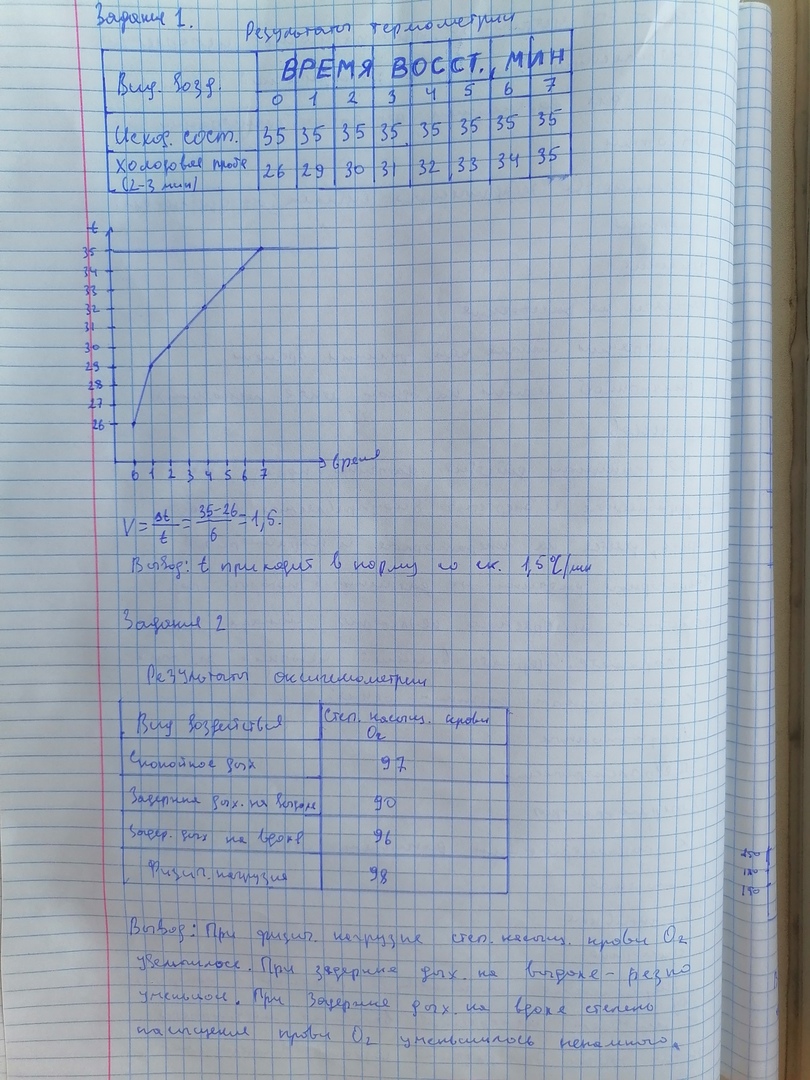 Задание 1.
Результаты термометрии
Вид. возд. ВРЕМЯ ВОССТ., МИН
0 1 2 3 4 5 6 7
Исход. сост. 35 35 35 35 35 35 35 35
Холодовая проба 26 29 30 31 32 33 34 35
(2-3 мин)
t
35
34
33
32
31
30
29
28
27
26
0 1 2 3 4 5 6 7 время
V = Δt/t = 35-26/6 = 1,5.
Вывод: t приходит в норму со ск. 1,5°C/мин
Задание 2
Результаты оксигемометрии
Вид воздействия Степ. насыщ. крови
O₂
Спокойное дых 97
Задержка дых. на выдохе 90
Задер. дых на вдохе 96
Физич. нагрузка 98
Вывод: При физич. нагрузке степ. насыщ. крови O₂
При задержке дых. на выдохе - резко
При задержке дых. на вдохе степень
насыщения крови O₂ уменьшилось ненамного.